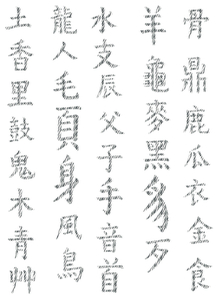 骨鼎鹿瓜衣金食
羊龜麥黑歹
水支辰父子手音首
龍人毛頁身風鳥
土香里鼓鬼木青艸